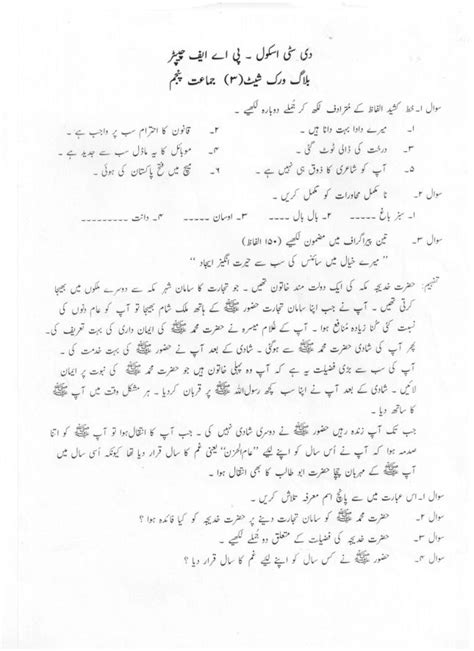 دی سٹی اسکول ۔ پی اے ایف چیپٹر
بلاگ ورک شیٹ (۳) جماعت پنجم
سوال ۱۔ خط کشید الفاظ کے مترادف لکھ کر جملے دوبارہ لکھیے ۔
۱۔ میرے دادا بہت دانا ہیں ۔ ۲۔ قانون کا احترام سب پر واجب ہے ۔
۳۔ درخت کی ڈالی ٹوٹ گئی ۔ ۴۔ موبائل کا یہ ماڈل سب سے جدید ہے ۔
۵۔ آپ کو شاعری کا ذوق ہی نہیں ہے ۔ ۶۔ میچ میں فتح پاکستان کی ہوئی ۔
سوال ۲۔ نا مکمل محاورات کو مکمل کریں ۔
۱۔ سبز باغ ----- ۲۔ بال بال ---- ۳۔ اوسان ----- ۴۔ دانت ---------
سوال ۳۔ تین پیراگراف میں مضمون لکھیے (۱۵۰ الفاظ)
" میرے خیال میں سائنس کی سب سے حیرت انگیز ایجاد "
تفہیم: حضرت خدیجہ مکہ کی ایک دولت مند خاتون تھیں ۔ جو تجارت کا سامان شہر مکہ سے دوسرے ملکوں میں بھیجا
کرتی تھیں ۔ آپ نے جب اپنا سامان تجارت حضور ﷺ کے ہاتھ ملک شام بھیجا تو آپ کو عام دنوں کی
نسبت کئی گنا زیادہ منافع ہوا ۔ آپ کے غلام میسرہ نے حضرت محمد ﷺ کی ایمان داری کی بہت تعریف کی ۔
پھر آپ کی شادی حضرت محمد ﷺ سے ہوگئی ۔ شادی کے بعد آپ نے حضور ﷺ کی بہت خدمت کی ۔
آپ کی سب سے بڑی فضیلت یہ ہے کہ آپ وہ پہلی خاتون ہیں جو حضرت محمد ﷺ پر ایمان
لائیں ۔ شادی کے بعد آپ نے اپنا سب کچھ رسول اللہ ﷺ پر قربان کردیا ۔ ہر مشکل وقت میں آپ ﷺ
کا ساتھ دیا ۔
جب تک آپ زندہ رہیں حضور ﷺ نے دوسری شادی نہیں کی ۔ جب آپ کا انتقال ہوا تو آپ ﷺ کو اتنا
صدمہ ہوا کہ آپ نے اُس سال کو اپنے لئیے "عام الحزن" یعنی غم کا سال قرار دیا تھا کیونکہ اسی سال میں
آپ ﷺ کے مہربان چچا حضرت ابو طالب کا بھی انتقال ہوا ۔
سوال ۱۔ اس عبارت میں سے پانچ اسم معرفہ تلاش کریں ۔
سوال ۲۔ حضرت محمد ﷺ کو سامان تجارت دینے پر حضرت خدیجہ کو کیا فائدہ ہوا ؟
سوال ۳۔ حضرت خدیجہ کی فضیلت کے متعلق دو جملے لکھیے ۔
سوال ۴۔ حضور ﷺ نے کس سال کو اپنے لئیے غم کا سال قرار دیا ؟